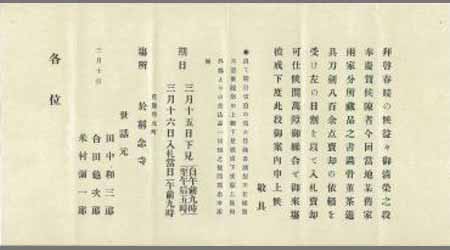 拝啓春暖の候益々御清栄之段
奉慶賀候陳者今回当地某旧家
両家分所蔵品之書画骨董茶道
具刀剣八百余点売却の依頼を
受け左の日割を以て入札売却
可仕候間萬障御繰合て御来塲
被成下度此段御案内申上候
敬具
期日
三月十五日下見
自午前九時
至午后五時
三月十六日入札当日午前九時
塲所
於称念寺
世話元
田中和三郎
合田亀次郎
米村彌一郎
三月十日
各位